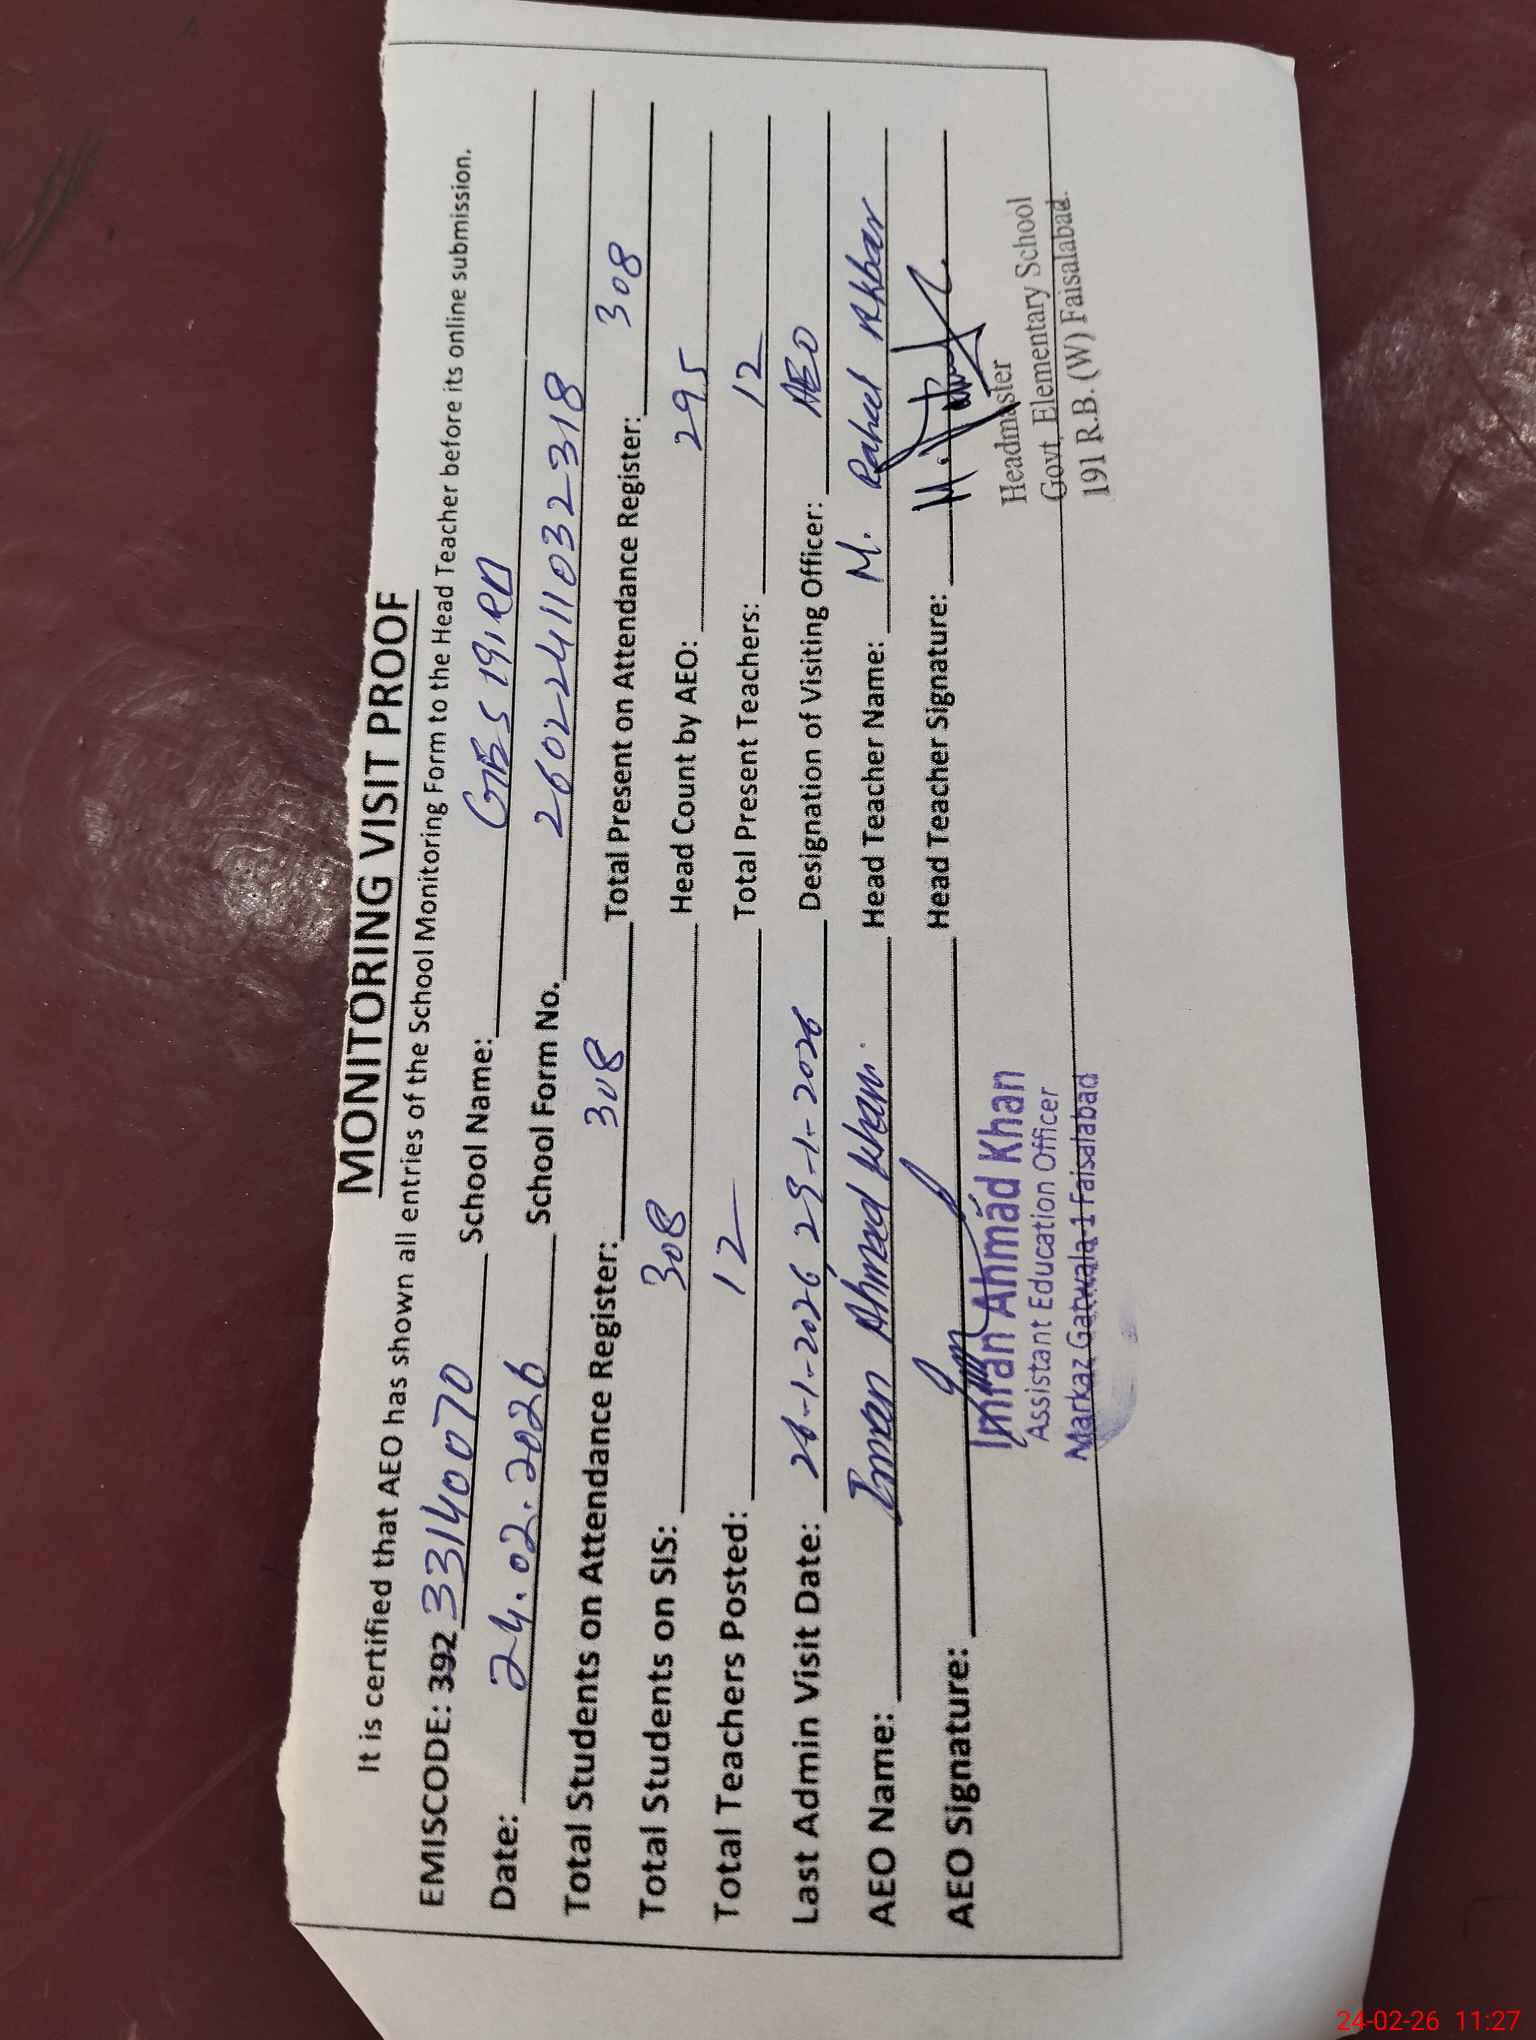 MONITORING VISIT PROOF
It is certified that AEO has shown all entries of the School Monitoring Form to the Head Teacher before its online submission.
EMISCODE: 392 33140070 School Name: GES 191 RB
Date: 24.02.2026 School Form No. 260224110323 18
Total Students on Attendance Register: 308 Total Present on Attendance Register: 308
Total Students on SIS: 308 Head Count by AEO: 295
Total Teachers Posted: 12 Total Present Teachers: 12
Last Admin Visit Date: 26-1-2026 29-1-2026 Designation of Visiting Officer: AEO
AEO Name: Imran Ahmad Khan Head Teacher Name: M. Rahel Akbar
AEO Signature: Head Teacher Signature:
Imran Ahmad Khan
Assistant Education Officer
Markaz Gatwala-1 Faisalabad
Headmaster
Govt. Elementary School
191 R.B. (W) Faisalabad.
24-02-26 11:27